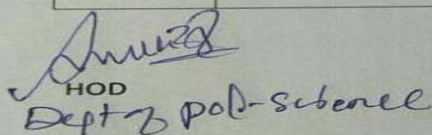 HOD
Dept of pol-science